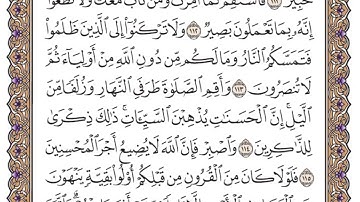 خَبِيرٌ ١١١ فَاسْتَقِمْ كَمَا أُمِرْتَ وَمَن تَابَ مَعَكَ وَلَا تَطْغَوْا
إِنَّهُۥ بِمَا تَعْمَلُونَ بَصِيرٌ ١١٢ وَلَا تَرْكَنُوٓا۟ إِلَى ٱلَّذِينَ ظَلَمُوا۟
فَتَمَسَّكُمُ ٱلنَّارُ وَمَا لَكُم مِّن دُونِ ٱللَّهِ مِنْ أَوْلِيَآءَ ثُمَّ
لَا تُنصَرُونَ ١١٣ وَأَقِمِ ٱلصَّلَوٰةَ طَرَفَىِ ٱلنَّهَارِ وَزُلَفًا مِّنَ
ٱلَّيْلِ إِنَّ ٱلْحَسَنَٰتِ يُذْهِبْنَ ٱلسَّيِّـَٔاتِ ذَٰلِكَ ذِكْرَىٰ
لِلذَّٰكِرِينَ ١١٤ وَٱصْبِرْ فَإِنَّ ٱللَّهَ لَا يُضِيعُ أَجْرَ ٱلْمُحْسِنِينَ
١١٥ فَلَوْلَا كَانَ مِنَ ٱلْقُرُونِ مِن قَبْلِكُمْ أُو۟لُوا۟ بَقِيَّةٍ يَنْهَوْنَ